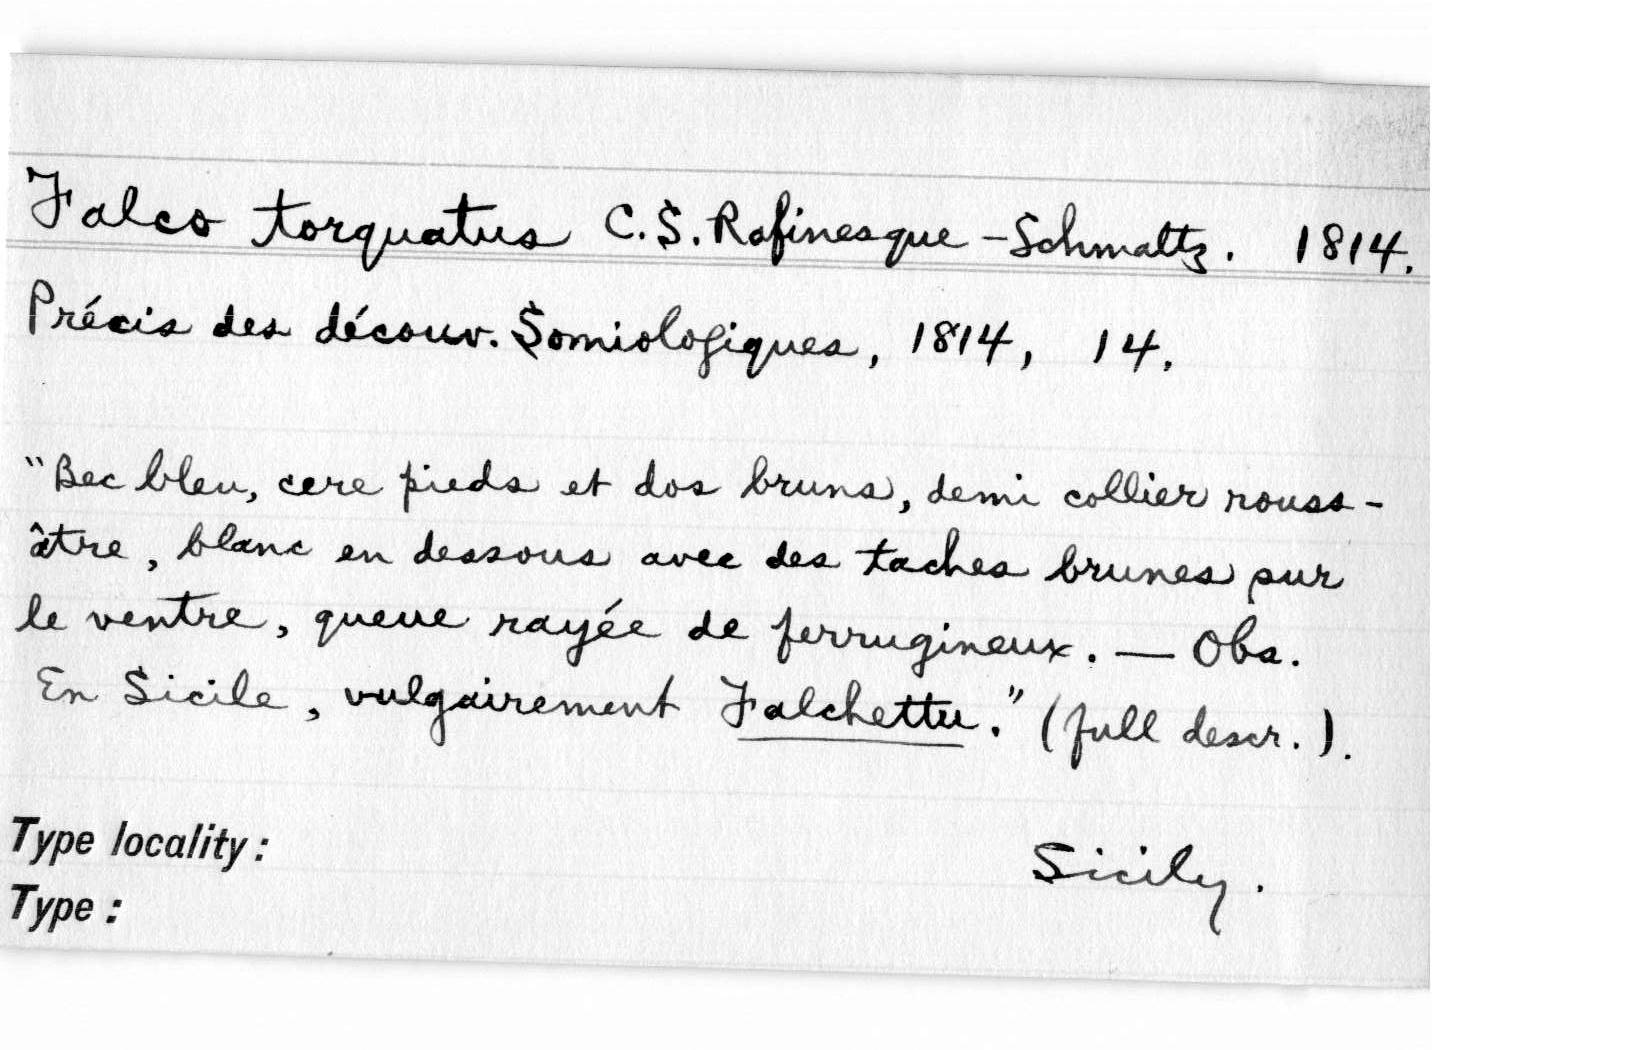 Falco torquatus C.S. Rafinesque-Schmaltz. 1814.
Précis des découv. Somiologiques, 1814, 14.
"Bec bleu, cere pieds et dos bruns, demi collier rouss-
âtre, blanc en dessous avec des taches brunes sur
le ventre, queue rayée de ferrugineux. — Obs.
En Sicile, vulgairement Falchettu." (full descr.).
Type locality: Sicily.
Type: